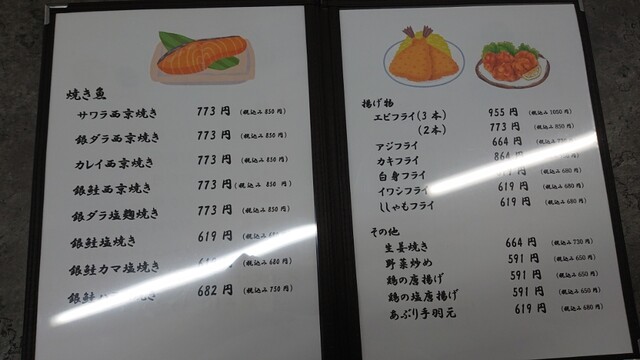 焼き魚
サワラ西京焼き 773 円 (税込み 850 円)
銀ダラ西京焼き 773 円 (税込み 850 円)
カレイ西京焼き 773 円 (税込み 850 円)
銀鮭西京焼き 773 円 (税込み 850 円)
銀ダラ塩麹焼き 773 円 (税込み 850 円)
銀鮭塩焼き 619 円 (税込み 円)
銀鮭カマ塩焼き 円 (税込み 680 円)
銀鮭 焼き 682 円 (税込み 750 円)
揚げ物
エビフライ(3 本) 955 円 (税込み 1050 円)
(2本) 773 円 (税込み 850 円)
アジフライ 664 円
カキフライ 864 円
白身フライ 円 (税込み 680 円)
イワシフライ 619 円 (税込み 680 円)
ししゃもフライ 619 円 (税込み 680 円)
その他
生姜焼き 664 円 (税込み 730 円)
野菜炒め 591 円 (税込み 650 円)
鶏の唐揚げ 591 円 (税込み 650 円)
鶏の塩唐揚げ 591 円 (税込み 650 円)
あぶり手羽元 619 円 (税込み 680 円)